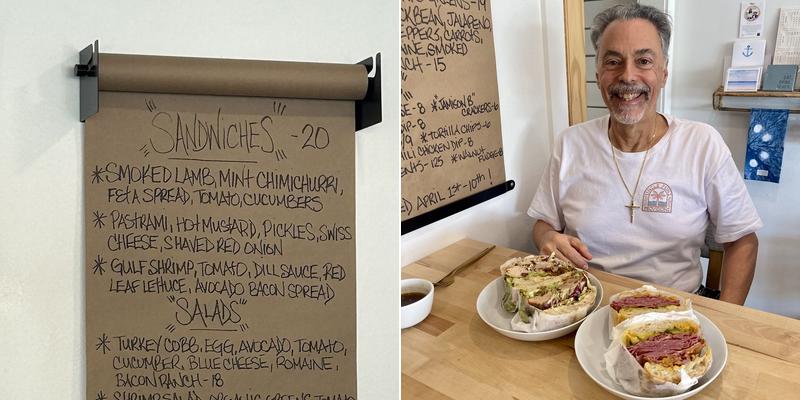 "SANDWICHES" - 20
* SMOKED LAMB, MINT CHIMICHURRI,
FETA SPREAD, TOMATO, CUCUMBERS
* PASTRAMI, HOT MUSTARD, PICKLES, SWISS
CHEESE, SHAVED RED ONION
* GULF SHRIMP, TOMATO, DILL SAUCE, RED
LEAF LETTUCE, AVOCADO BACON SPREAD
"SALADS"
* TURKEY COBB, EGG, AVOCADO, TOMATO,
CUCUMBER, BLUE CHEESE, ROMAINE,
BACON RANCH - 18
* SHRIMP SALAD, ORGANIC GREENS, TOMATO
GREENS - 19
BEAN, JALAPENO,
PEPPERS, CARROTS,
SMOKED
RANCH - 15
SE - 8 * "JAMISON B"
CRACKERS - 6
DIP - 8
* TORTILLA CHIPS - 6
ILI CHICKEN DIP - 8
ENTS - 125 * WALNUT
FUDGE - 8
ED APRIL 1ST - 10TH!